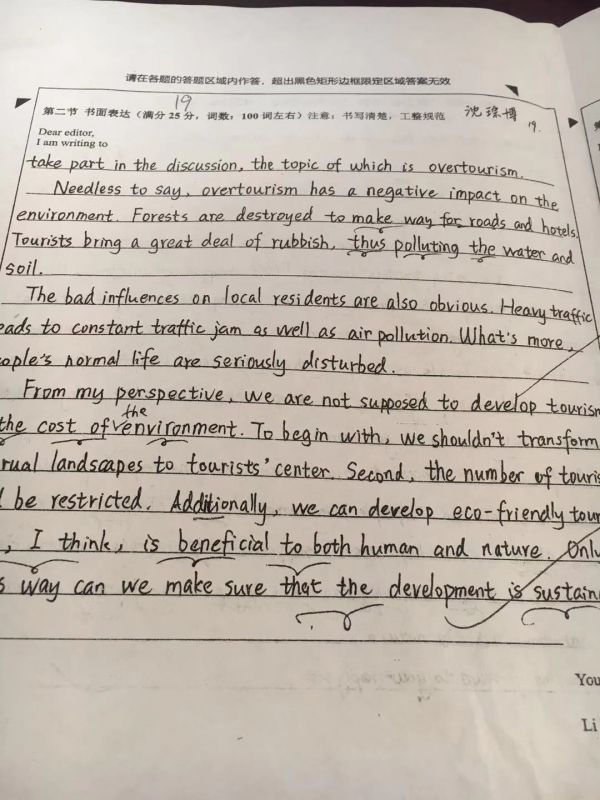 请在各题的答题区域内作答，超出黑色矩形边框限定区域答案无效
19
第二节 书面表达（满分25分，词数：100词左右）注意：书写清楚，工整规范 沈琮博
19.
Dear editor,
I am writing to
take part in the discussion, the topic of which is overtourism.
Needless to say, overtourism has a negative impact on the
environment. Forests are destroyed to make way for roads and hotels.
Tourists bring a great deal of rubbish, thus polluting the water and
soil.
The bad influences on local residents are also obvious. Heavy traffic
eads to constant traffic jam as well as air pollution. What's more,
ople's normal life are seriously disturbed.
From my perspective, we are not supposed to develop tourism
the cost of the environment. To begin with, we shouldn't transform
rual landscapes to tourists' center. Second, the number of touris
be restricted. Additionally, we can develop eco-friendly tour
, I think, is beneficial to both human and nature. Only
s way can we make sure that the development is sustain
You
Li